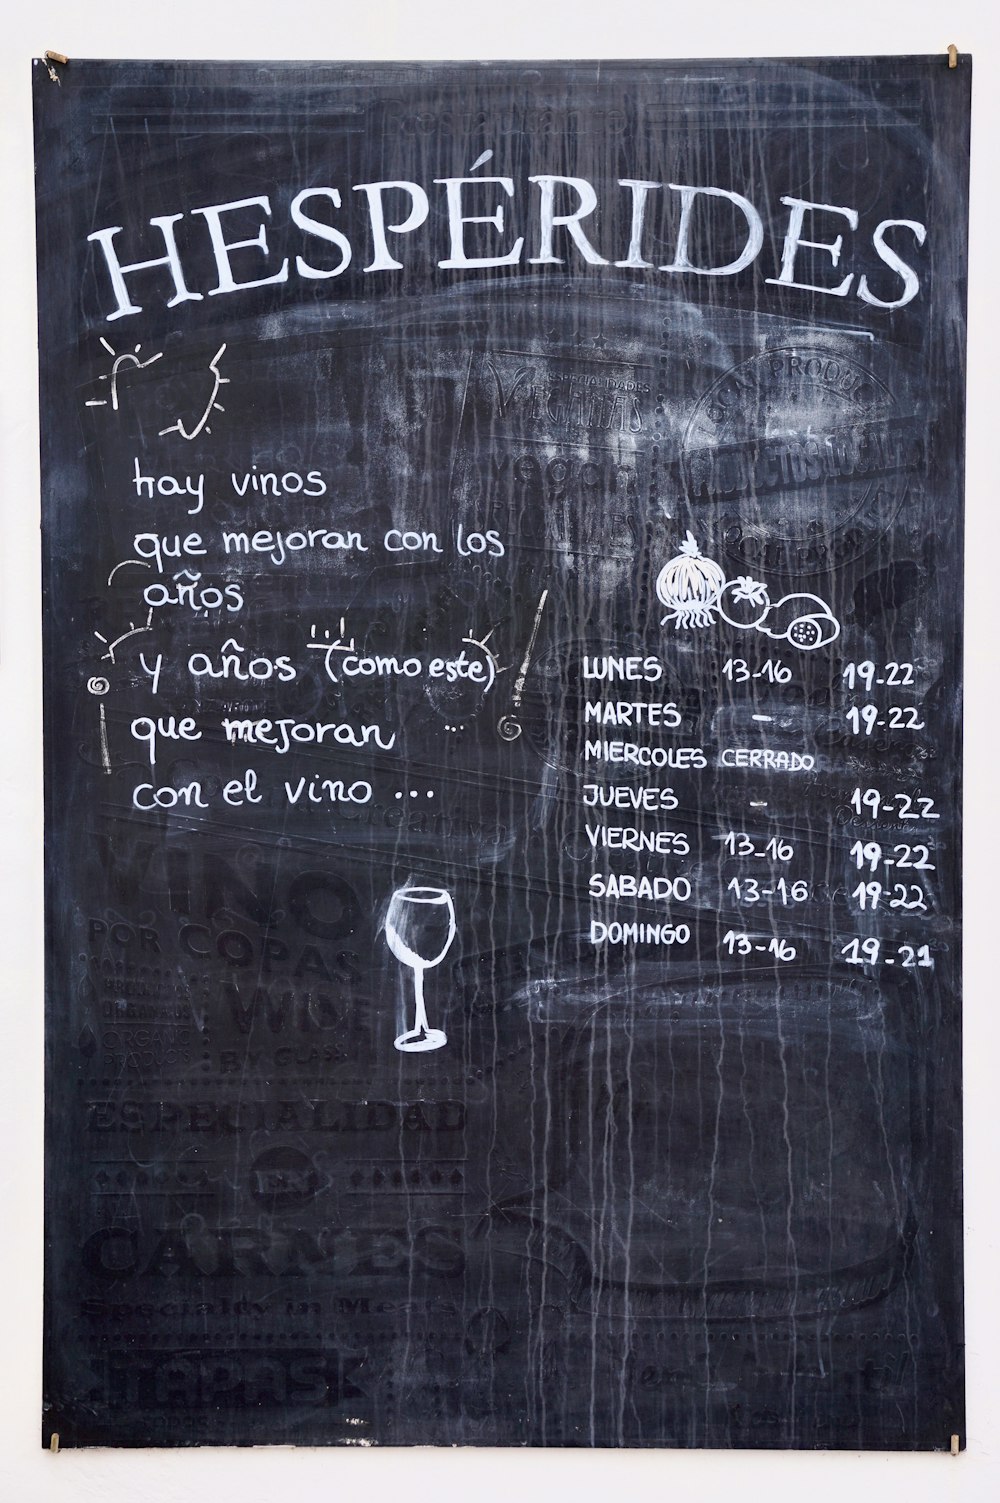 HESPÉRIDES
hay vinos
que mejoran con los
años
y años (como este)
que mejoran
con el vino ...
LUNES 13-16 19-22
MARTES - 19-22
MIERCOLES CERRADO
JUEVES - 19-22
VIERNES 13-16 19-22
SABADO 13-16 19-22
DOMINGO 13-16 19-21
ESPECIALIDADES
VEGANAS
vegan
VINO
POR COPAS
WINE
BY GLASS
ESPECIALIDAD
EN
CARNES
Speciality in Meats
TAPAS